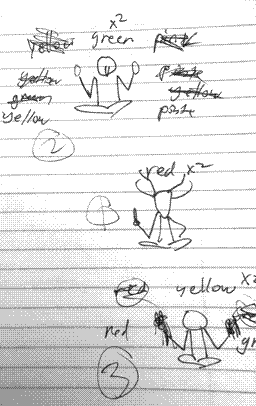 x²
yellow green pink
yellow
green
yellow
pink
yellow
pink
2
red x²
1
red yellow x²
red gr
3